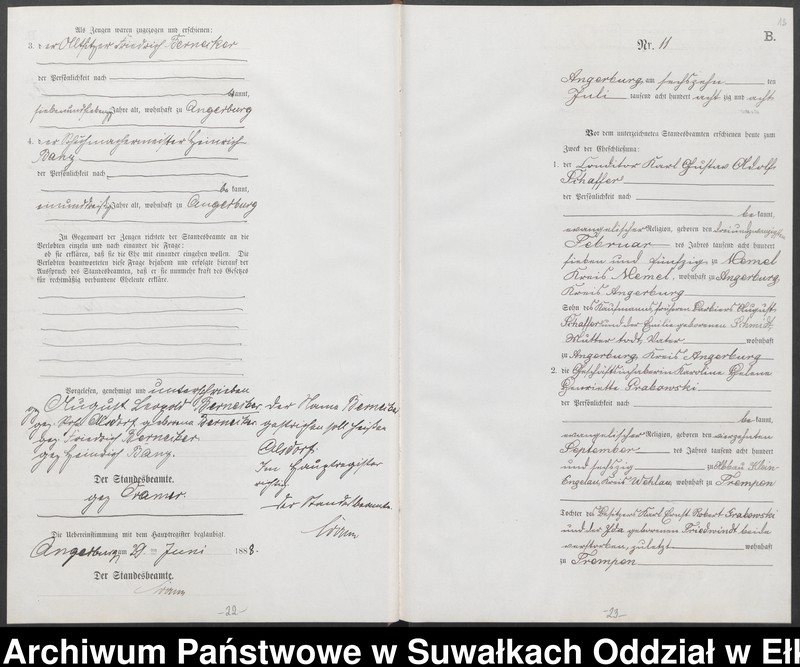 Als Zeugen waren zugezogen und erschienen:
3. der Altsitzer Friedrich Berneiker
der Persönlichkeit nach
kannt,
siebenundsiebenzig Jahre alt, wohnhaft zu Angerburg
4. der Schuhmachermeister Heinrich
Banz
der Persönlichkeit nach
be kannt,
einunddreißig Jahre alt, wohnhaft zu Angerburg
In Gegenwart der Zeugen richtete der Standesbeamte an die
Verlobten einzeln und nach einander die Frage:
ob sie erklären, daß sie die Ehe mit einander eingehen wollen. Die
Verlobten beantworteten diese Frage bejahend und erfolgte hierauf der
Ausspruch des Standesbeamten, daß er sie nunmehr kraft des Gesetzes
für rechtmäßig verbundene Eheleute erkläre.
Vorgelesen, genehmigt und unterschrieben
gez August Leopold Berneiker
gez. Alsdorf geborene Berneiker
gez Friedrich Berneiker
gez Heinrich Banz.
Der Standesbeamte.
gez Cramer.
Der Name Berneiker
gestrichen soll heißen
Alsdorf.
Im Hauptregister
richtig.
Der Standesbeamte.
Die Uebereinstimmung mit dem Hauptregister beglaubigt.
Angerburg am 29 ten Juni 1888.
Der Standesbeamte.
-22-
B.
Nr. 11
Angerburg am sechszehn ten
Juli tausend acht hundert acht zig und acht
Vor dem unterzeichneten Standesbeamten erschienen heute zum
Zweck der Eheschließung:
1. der Conditor Karl Gustav Adolf
Schaffer
der Persönlichkeit nach
be kannt,
evangelischer Religion, geboren den dreiundzwanzigsten
Februar des Jahres tausend acht hundert
sieben und fünfzig zu Memel
Kreis Memel, wohnhaft zu Angerburg,
Kreis Angerburg
Sohn des Kaufmanns, früheren Barbiers August
Schaffer und der Emilie geborenen Schmidt,
Mutter todt, Vater wohnhaft
zu Angerburg, Kreis Angerburg
2. die Geschäftsinhaberin Karoline Helene
Henriette Grabowski
der Persönlichkeit nach
be kannt,
evangelischer Religion, geboren den vierzehnten
September des Jahres tausend acht hundert
und sechszig zu Abbau Klein
Engelau, Kreis Wehlau wohnhaft zu Trempen
Tochter des Besitzers Karl Ernst Robert Grabowski
und der Ida geborenen Friedwindt beide
verstorben, zuletzt wohnhaft
zu Trempen
-23-
Archiwum Państwowe w Suwałkach Oddział w Eł